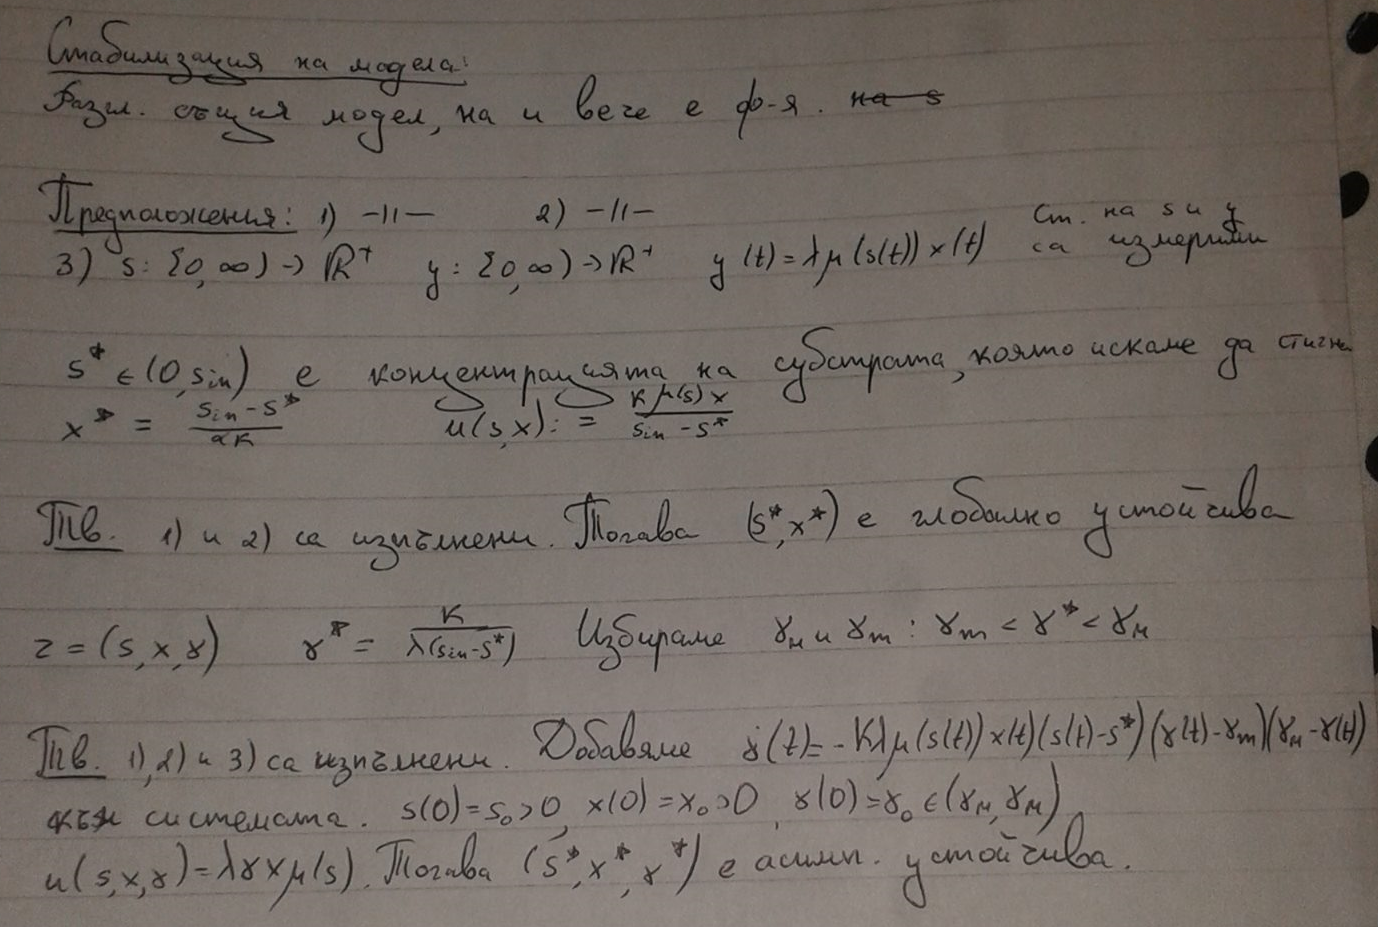 Стабилизация на модела:
Разгл. общия модел, на u вече е ф-я. на s
Предположения: 1) -||- 2) -||- Ст. на s и y
3) s: [0, ∞) → ℝ⁺ y: [0, ∞) → ℝ⁺ y(t) = λμ(s(t))x(t) са измерими
s* ∈ (0, sin) е концентрацията на субстрата, която искаме да стигне
x* = (sin - s*)/(αK) u(s,x): = (K μ(s) x)/(sin - s*)
Тв. 1) и 2) са изпълнени. Тогава (s*, x*) е глобално устойчива
z = (s, x, γ) γ* = K/(λ(sin - s*)) Избираме γм и γm : γm < γ* < γм
Тв. 1), 2) и 3) са изпълнени. Добавяме γ̇(t) = -Kλμ(s(t))x(t)(s(t)-s*)(γ(t)-γm)(γм-γ(t))
към системата. s(0) = s₀ > 0, x(0) = x₀ > 0, γ(0) = γ₀ ∈ (γм, γм)
u(s, x, γ) = λγxμ(s). Тогава (s*, x*, γ*) е асимп. устойчива.